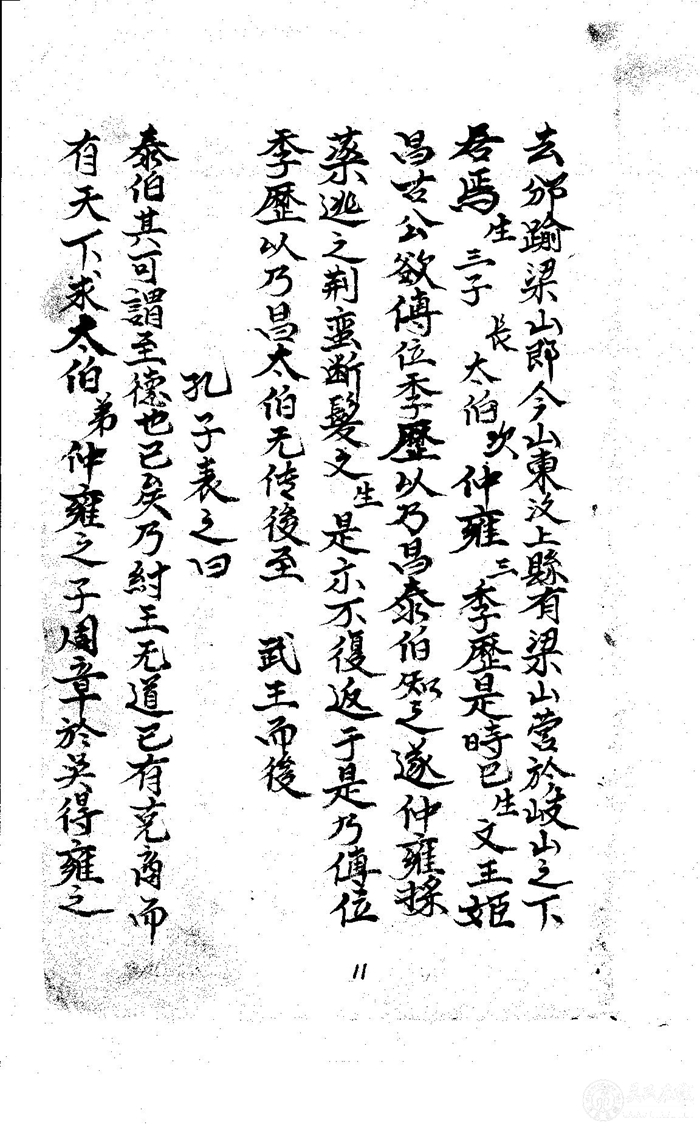 去邠踰梁山即今山東汶上縣有梁山营於岐山之下
居焉生三子長太伯次仲雍三季歷是時已生文王姬
昌古公欲傳位季歷以乃昌泰伯知之遂仲雍採
藥逃之荆蛮断髮文生是示不復返于是乃傳位
季歷以乃昌太伯无传後至 武王而後
孔子表之曰
泰伯其可謂至德也已矣乃紂王无道已有克商而
有天下求太伯弟仲雍之子周章於吴得雍之
11